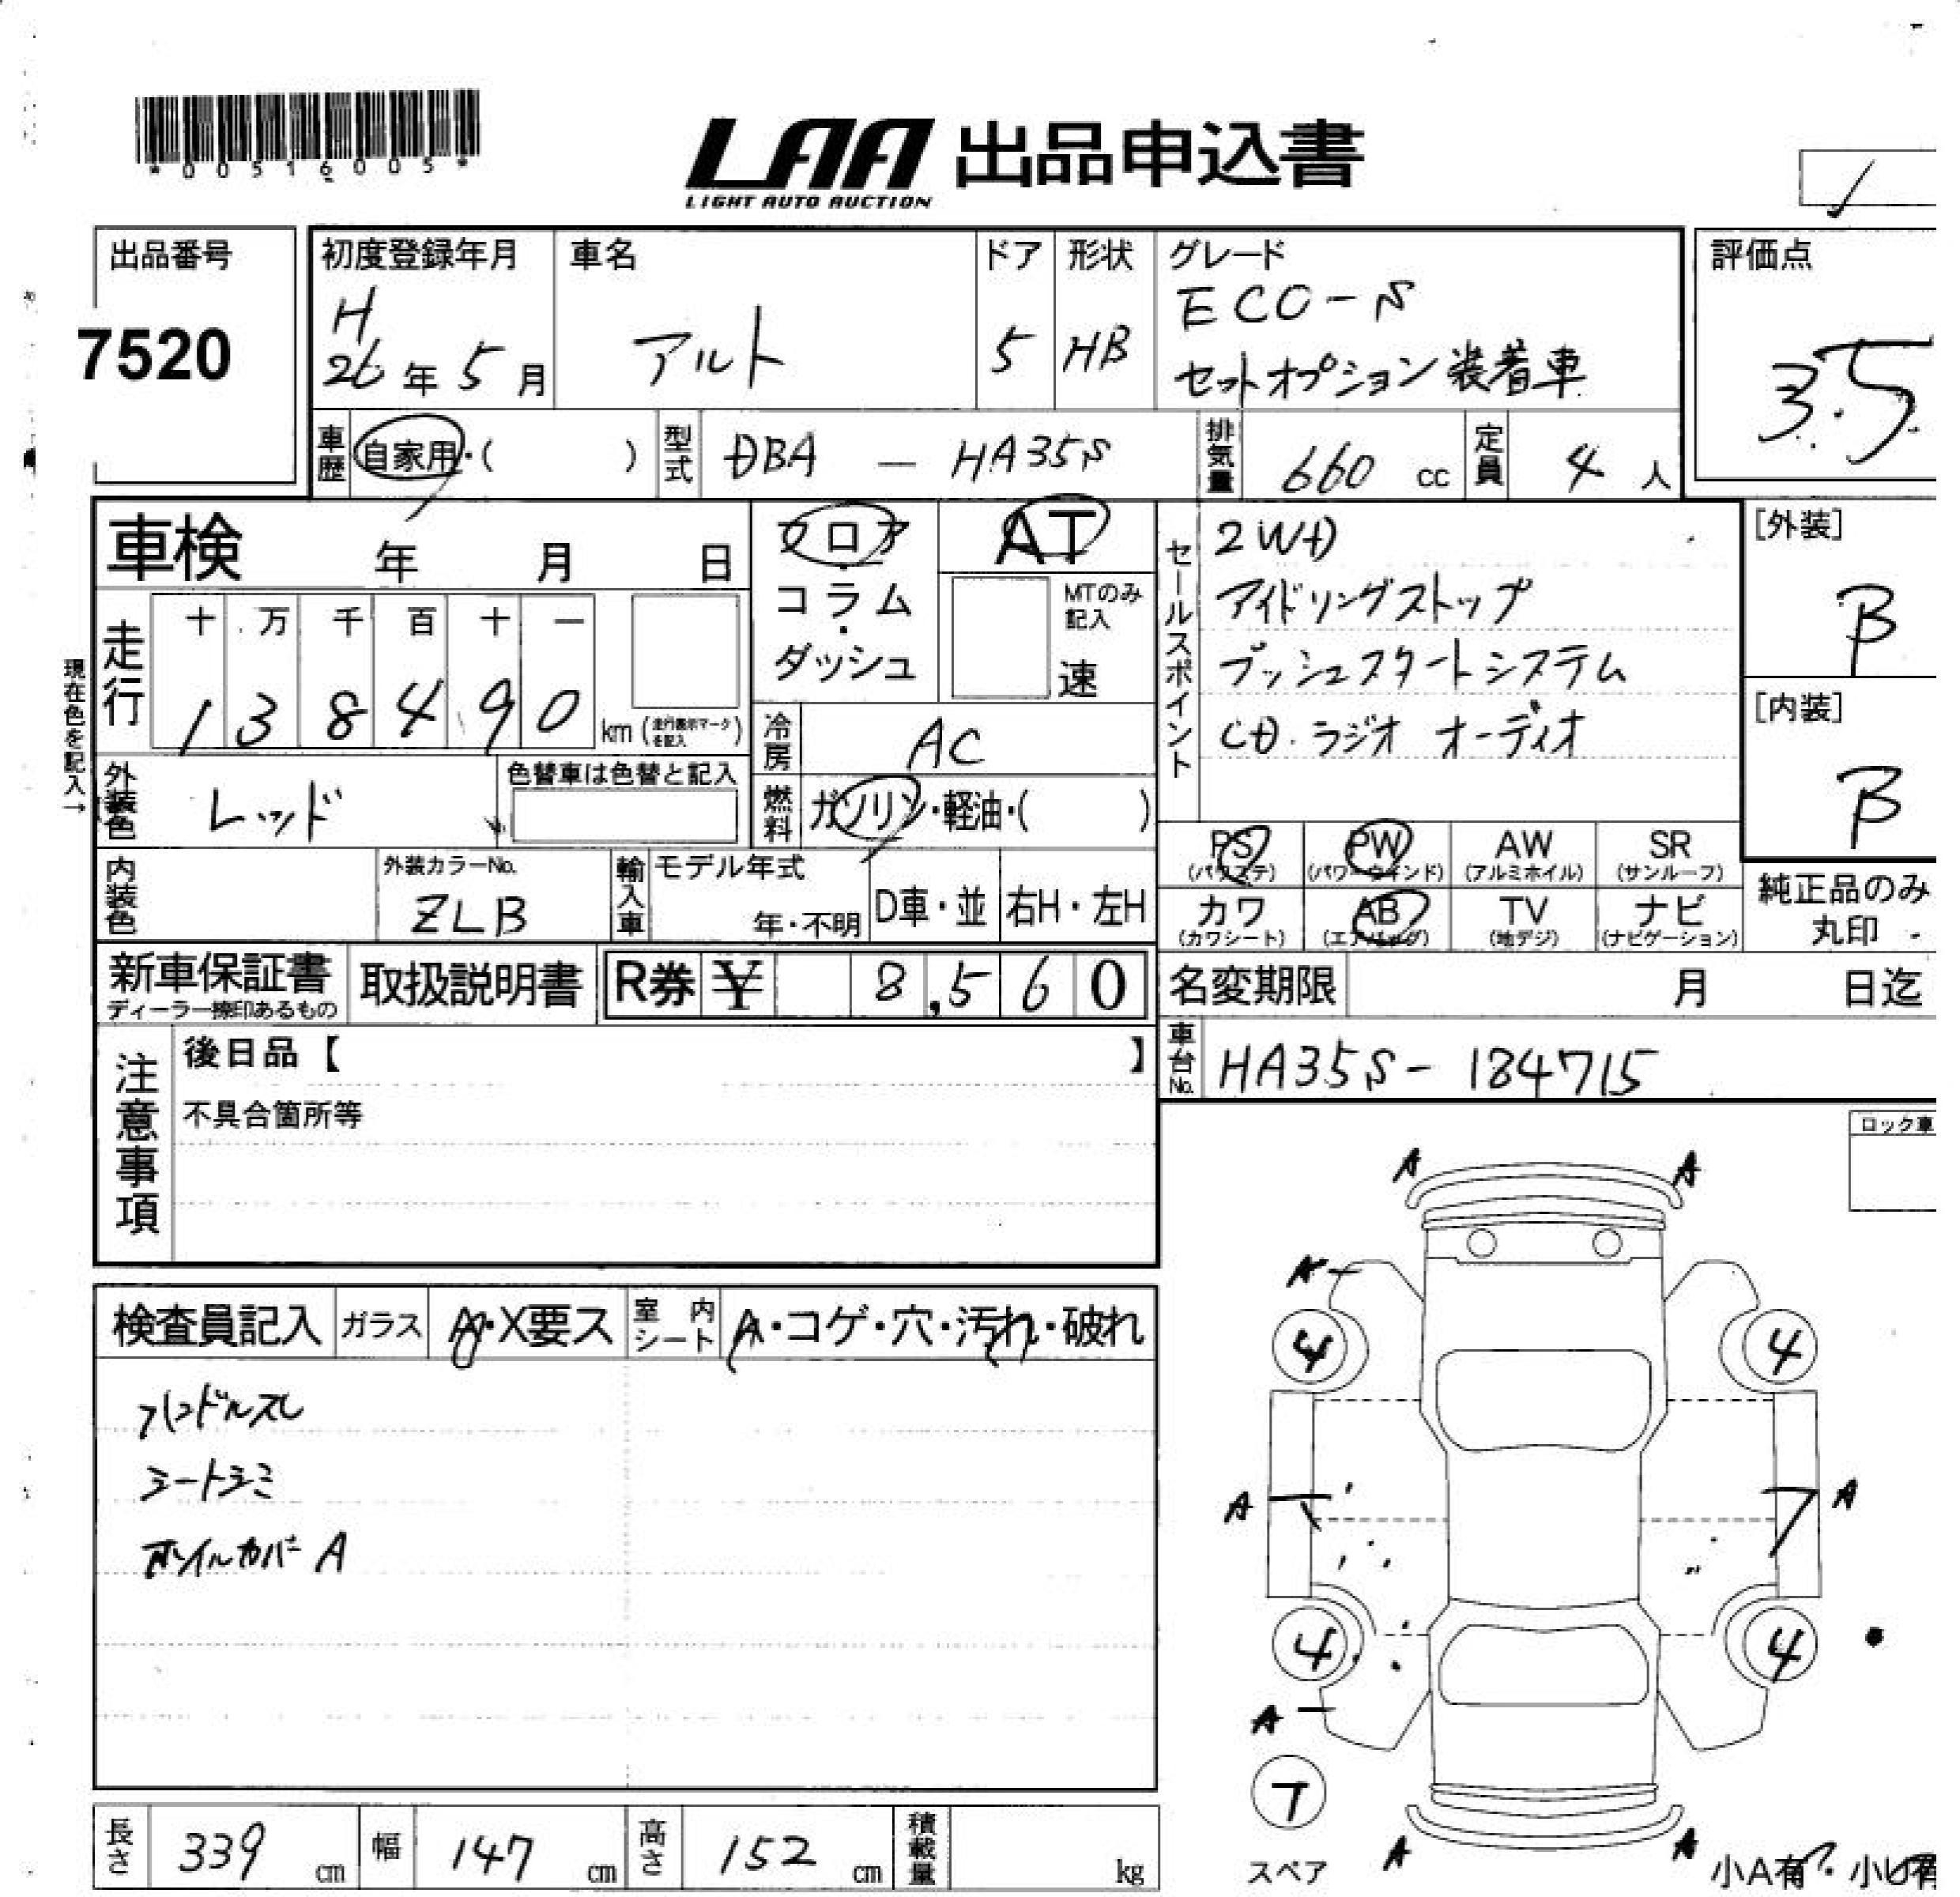 *00516005*
LAA 出品申込書
LIGHT AUTO AUCTION
出品番号
7520
初度登録年月
H
26年5月
車名
アルト
ドア
5
形状
HB
グレード
ECO-S
セットオプション装着車
評価点
3.5
車歴 自家用・( )
型式 DBA — HA35S
排気量 660 cc
定員 4 人
車検 年 月 日
フロア・コラム・ダッシュ
AT
MTのみ記入
速
セールスポイント
2WD
アイドリングストップ
プッシュスタートシステム
CD.ラジオ オーディオ
[外装]
B
[内装]
B
現在色を記入→
走行
十 万 千 百 十 一
1 3 8 4 9 0 km (走行表示マークを記入)
冷房 AC
燃料 ガソリン・軽油・( )
外装色 レッド
色替車は色替と記入
内装色
外装カラーNo.
ZLB
輸入車
モデル年式
年・不明
D車・並
右H・左H
PS (パワステ)
PW (パワーウインド)
AW (アルミホイル)
SR (サンルーフ)
カワ (カワシート)
AB (エアバッグ)
TV (地デジ)
ナビ (ナビゲーション)
純正品のみ丸印
新車保証書
ディーラー捺印あるもの
取扱説明書
R券 ¥ 8,560
名変期限 月 日迄
車台No. HA35S-184715
注意事項
後日品【 】
不具合箇所等
ロック車
検査員記入
ガラス A・X要ス
室内シート A・コゲ・穴・汚れ・破れ
ハンドルスレ
シートシミ
ホイルカバーA
A A
A
4 4
A A
4 4
A
7
スペア
A A
小A有・小U有
長さ 339 cm
幅 147 cm
高さ 152 cm
積載量 kg